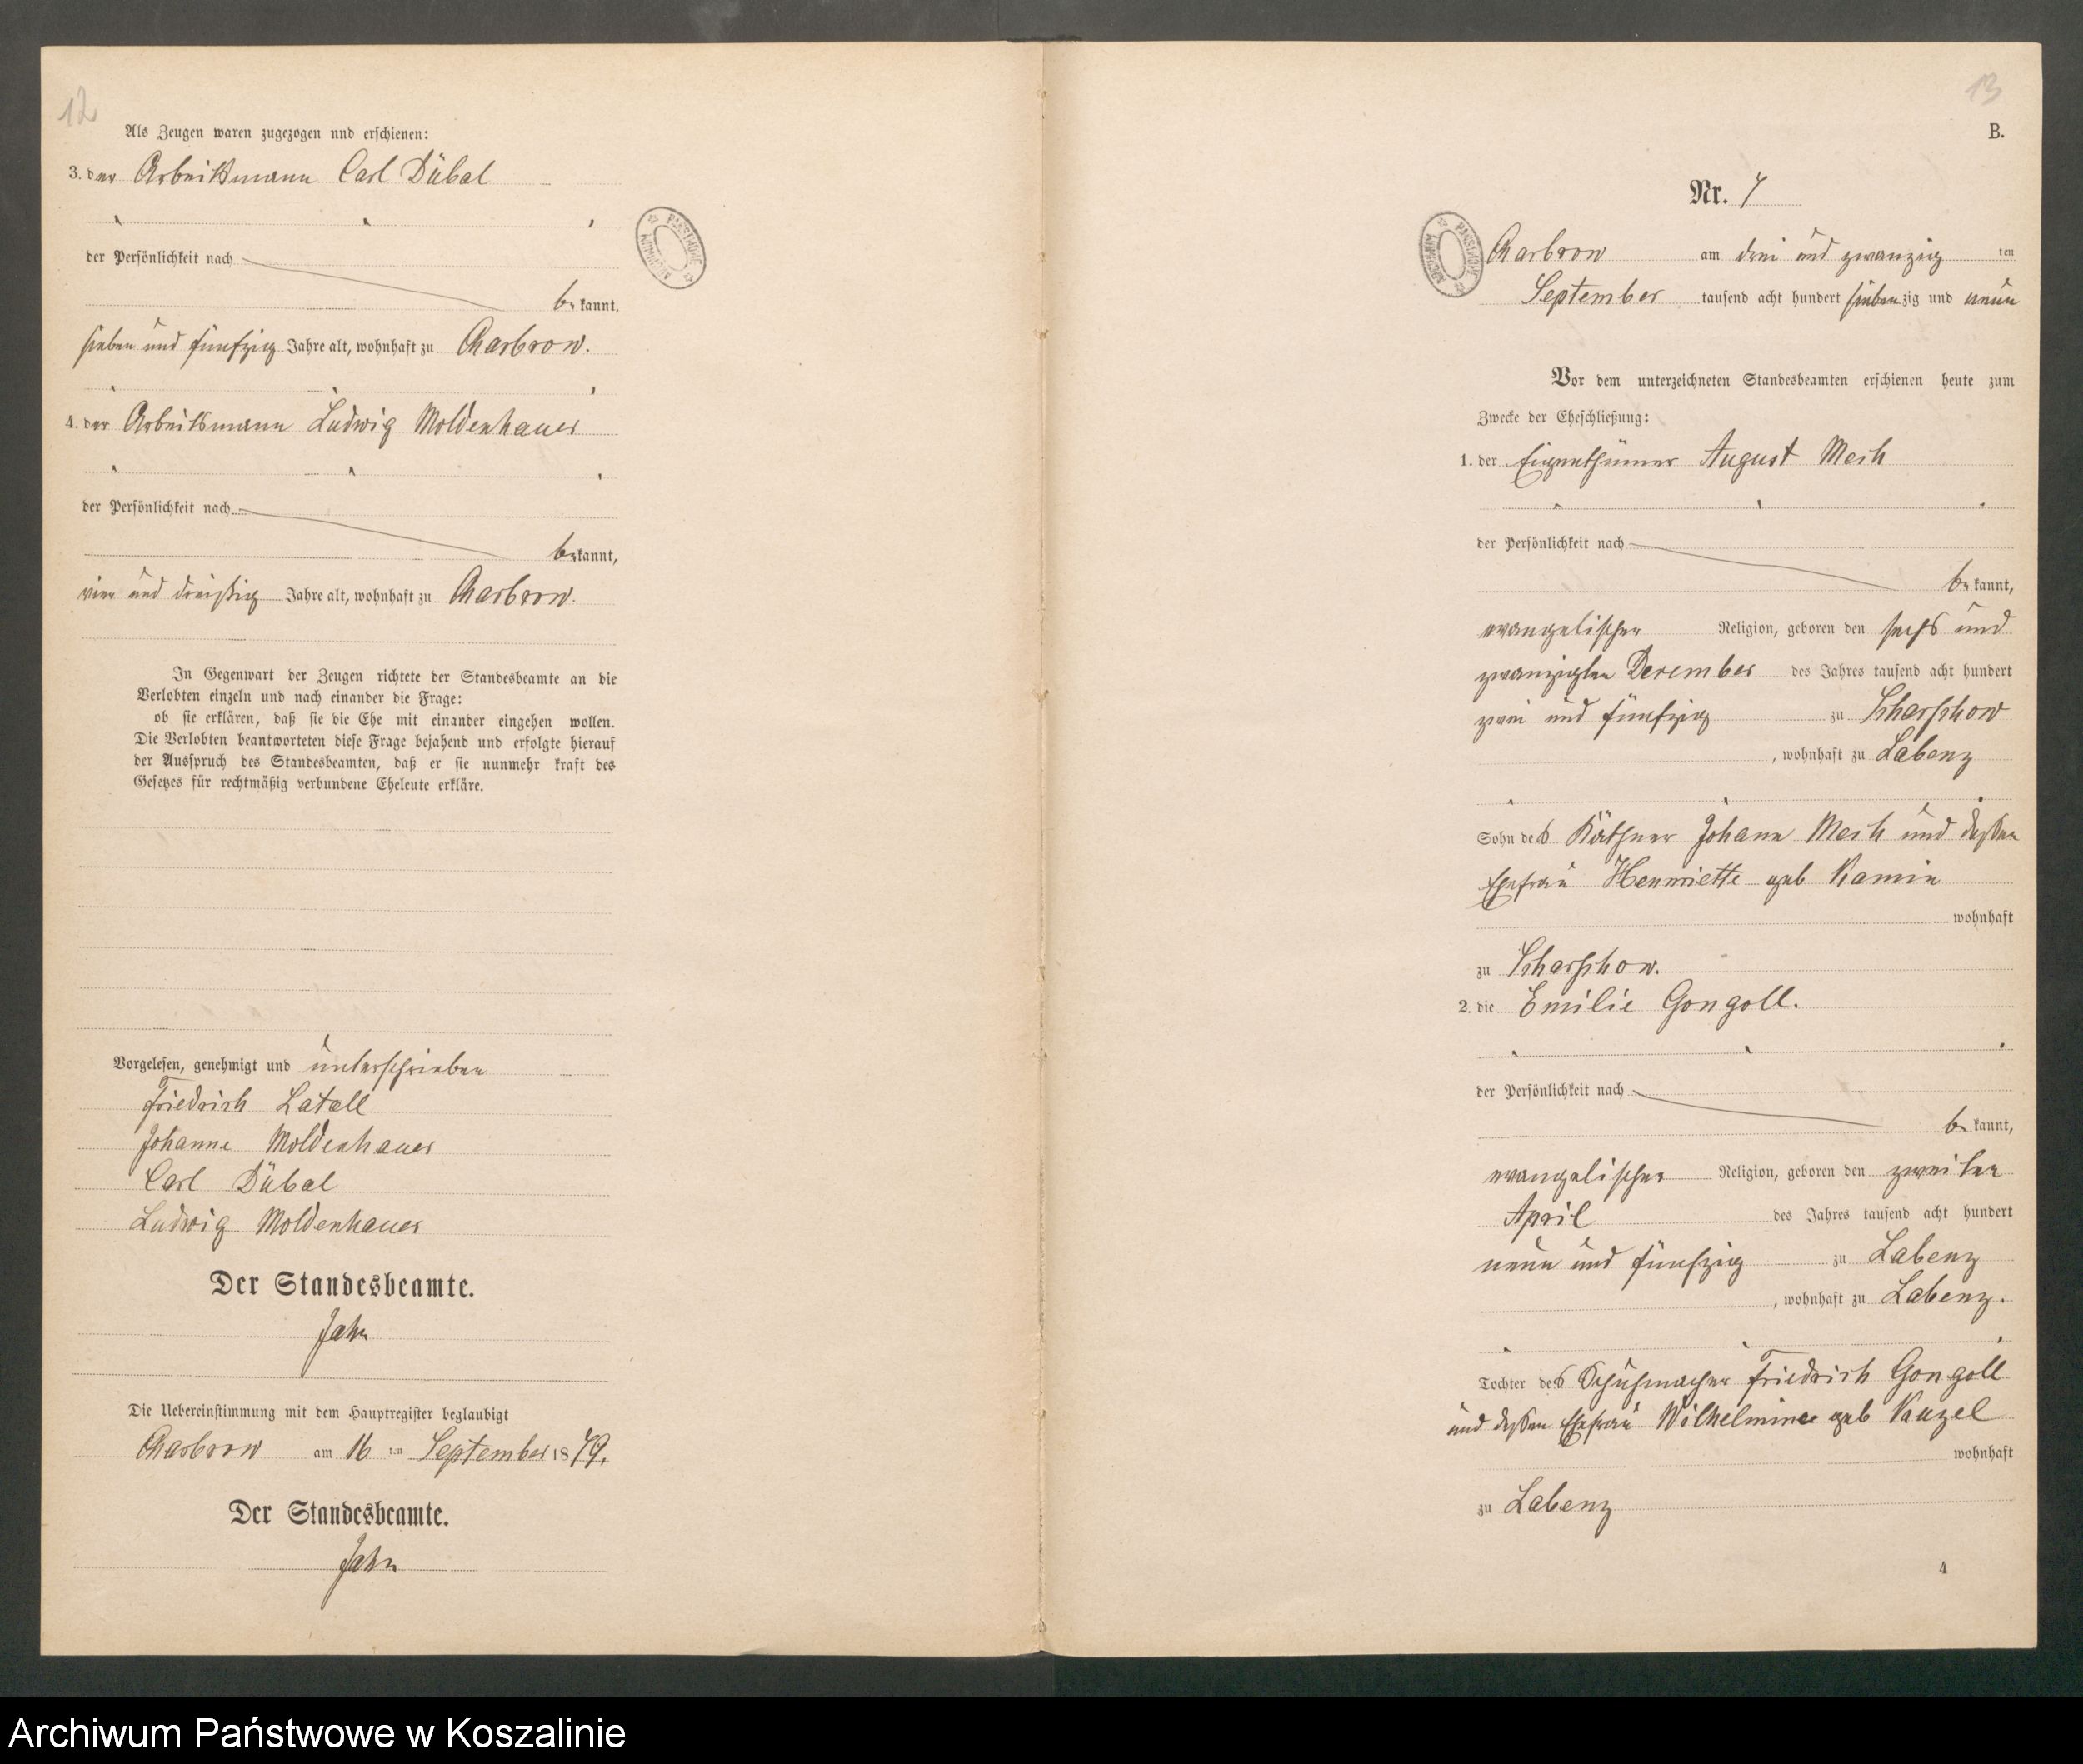 12
Als Zeugen waren zugezogen nnd erschienen:
3. der Arbeitsmann Carl Dübal
der Persönlichkeit nach
bekannt,
sieben und fünfzig Jahre alt, wohnhaft zu Charbrow.
4. der Arbeitsmann Ludwig Moldenhauer
der Persönlichkeit nach
bekannt,
vier und dreißig Jahre alt, wohnhaft zu Charbrow.
In Gegenwart der Zeugen richtete der Standesbeamte an die
Verlobten einzeln und nach einander die Frage:
ob sie erklären, daß sie die Ehe mit einander eingehen wollen.
Die Verlobten beantworteten diese Frage bejahend und erfolgte hierauf
der Ausspruch des Standesbeamten, daß er sie nunmehr kraft des
Gesetzes für rechtmäßig verbundene Eheleute erkläre.
Vorgelesen, genehmigt und unterschrieben
Friedrich Latall
Johanne Moldenhauer
Carl Dübal
Ludwig Moldenhauer
Der Standesbeamte.
Jahn
Die Uebereinstimmung mit dem Hauptregister beglaubigt
Charbrow am 16 ten September 1879.
Der Standesbeamte.
Jahn
13
B.
Nr. 7
Charbrow am drei und zwanzig ten
September tausend acht hundert siebenzig und neun
Vor dem unterzeichneten Standesbeamten erschienen heute zum
Zwecke der Eheschließung:
1. der Eigenthümer August Mech
der Persönlichkeit nach
bekannt,
evangelischer Religion, geboren den sechs und
zwanzigten December des Jahres tausend acht hundert
zwei und fünfzig zu Scharschow
, wohnhaft zu Labenz
Sohn des Käthner Johann Mech und dessen
Ehefrau Henriette geb Kamin
wohnhaft
zu Scharschow.
2. die Emilie Gongoll.
der Persönlichkeit nach
bekannt,
evangelischer Religion, geboren den zweiten
April des Jahres tausend acht hundert
neun und fünfzig zu Labenz
, wohnhaft zu Labenz.
Tochter des Schuhmacher Friedrich Gongoll
und dessen Ehefrau Wilhelmine geb Kauzel
wohnhaft
zu Labenz
4
Archiwum Państwowe w Koszalinie